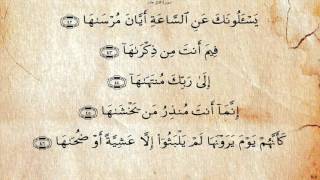 يَسْـَٔلُونَكَ عَنِ ٱلسَّاعَةِ أَيَّانَ مُرْسَىٰهَا ٤٢
فِيمَ أَنتَ مِن ذِكْرَىٰهَآ ٤٣
إِلَىٰ رَبِّكَ مُنتَهَىٰهَآ ٤٤
إِنَّمَآ أَنتَ مُنذِرُ مَن يَخْشَىٰهَا ٤٥
كَأَنَّهُمْ يَوْمَ يَرَوْنَهَا لَمْ يَلْبَثُوٓا۟ إِلَّا عَشِيَّةً أَوْ ضُحَىٰهَا ٤٦